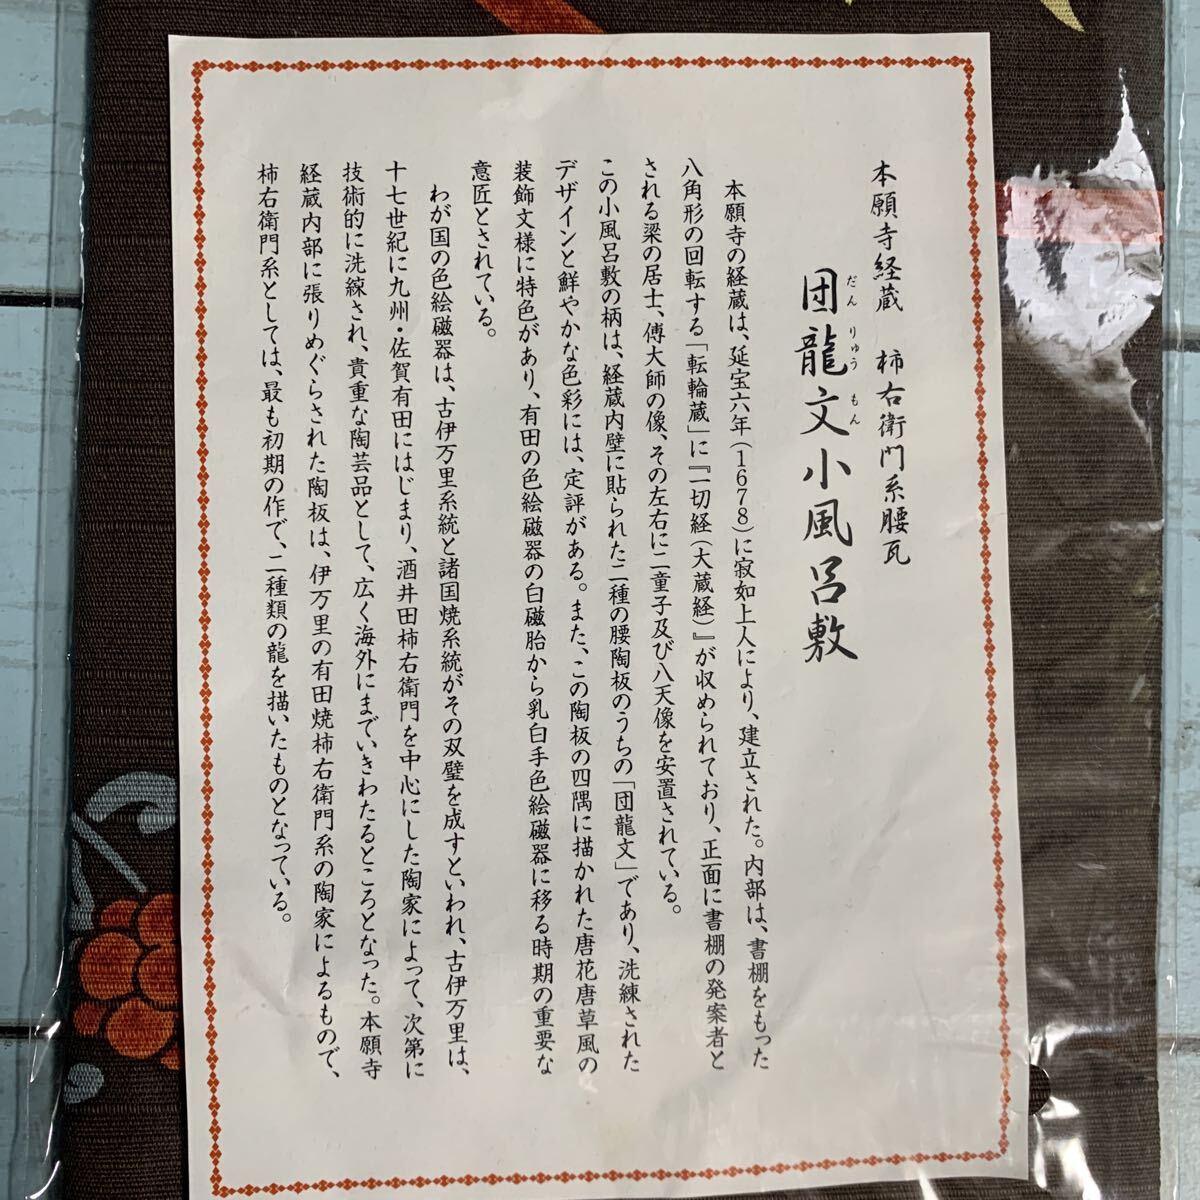 本願寺経蔵　柿右衛門系腰瓦
団龍文小風呂敷
だんりゅうもん
本願寺の経蔵は、延宝六年(1678)に寂如上人により、建立された。内部は、書棚をもった
八角形の回転する「転輪蔵」に『一切経(大蔵経)』が収められており、正面に書棚の発案者と
される梁の居士、傅大師の像、その左右に二童子及び八天像を安置されている。
この小風呂敷の柄は、経蔵内壁に貼られた二種の腰陶板のうちの「団龍文」であり、洗練された
デザインと鮮やかな色彩には、定評がある。また、この陶板の四隅に描かれた唐花唐草風の
装飾文様に特色があり、有田の色絵磁器の白磁胎から乳白手色絵磁器に移る時期の重要な
意匠とされている。
わが国の色絵磁器は、古伊万里系統と諸国焼系統がその双璧を成すといわれ、古伊万里は、
十七世紀に九州・佐賀有田にはじまり、酒井田柿右衛門を中心にした陶家によって、次第に
技術的に洗練され、貴重な陶芸品として、広く海外にまでいきわたるところとなった。本願寺
経蔵内部に張りめぐらされた陶板は、伊万里の有田焼柿右衛門系の陶家によるもので、
柿右衛門系としては、最も初期の作で、二種類の龍を描いたものとなっている。